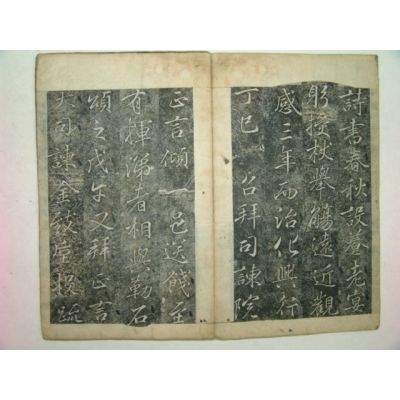 詩書春秋設養老宴
躬授杖擧觴遠近觀
感三年而治化興行
丁巳 召拜司諫院
正言傾一邑送餞至
有揮涕者相與勒石
頌之戊午又拜正言
大司諫金絃犀投疏